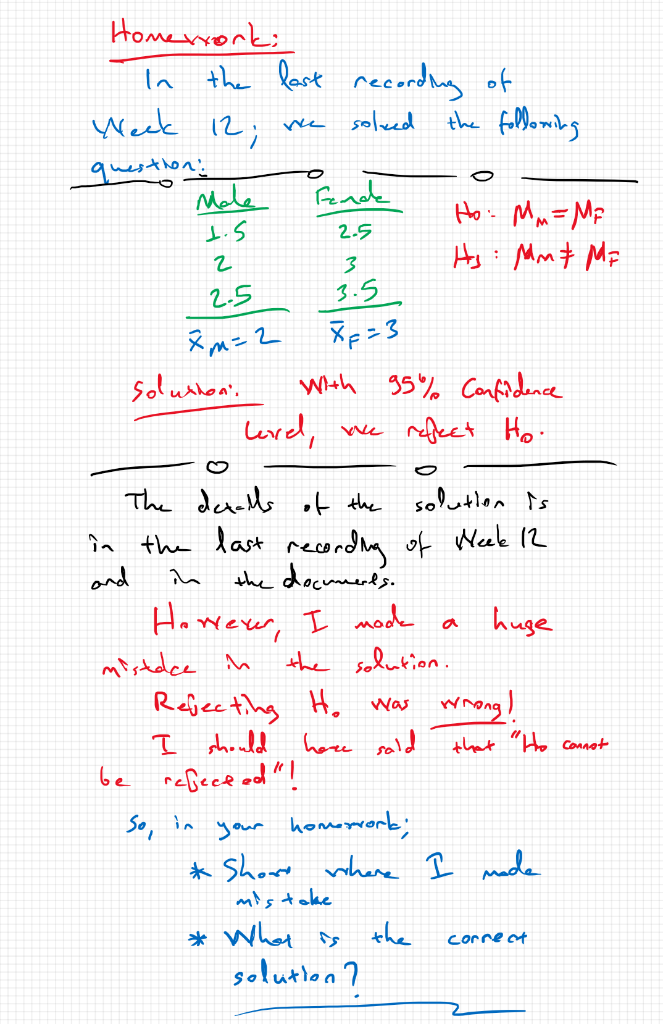 Homework:
In the last recording of
Week 12; we solved the following
question:
Male Female
1.5 2.5
2 3
2.5 3.5
x̄M = 2 x̄F = 3
H0: μM = μF
H1: μM ≠ μF
Solution: With 95% Confidence
Level, we reject H0.
The details of the solution is
in the last recording of Week 12
and in the documents.
However, I made a huge
mistake in the solution.
Rejecting H0 was wrong!
I should have said that "H0 cannot
be rejected"!
So, in your homework;
* Show where I made
mistake
* What is the correct
solution?